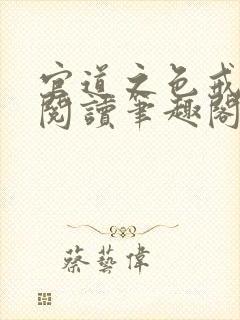 官道之色戒
閱讀筆趣閣
蔡藝偉